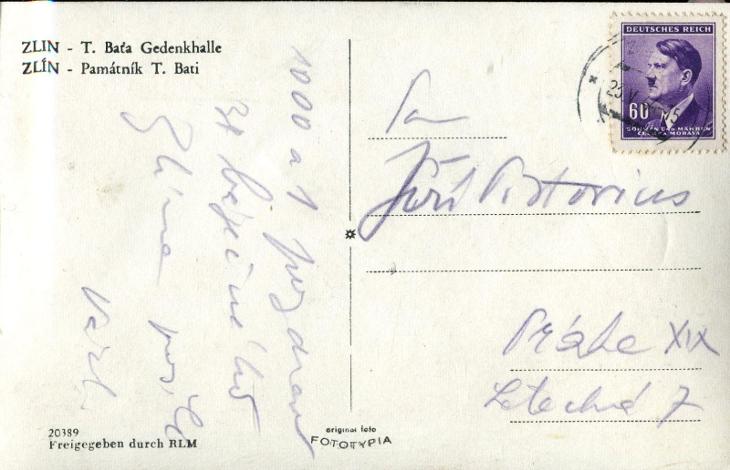 ZLIN - T. Baťa Gedenkhalle
ZLÍN - Památník T. Bati
1000 a 1 pozdrav
Zlína
Karel
20389
Freigegeben durch RLM
original foto
FOTOTYPIA
DEUTSCHES REICH
60
BÖHMEN UND MÄHREN
ČECHY A MORAVA
Pan
Jiří Pistorius
Praha XIX
Letecká 7